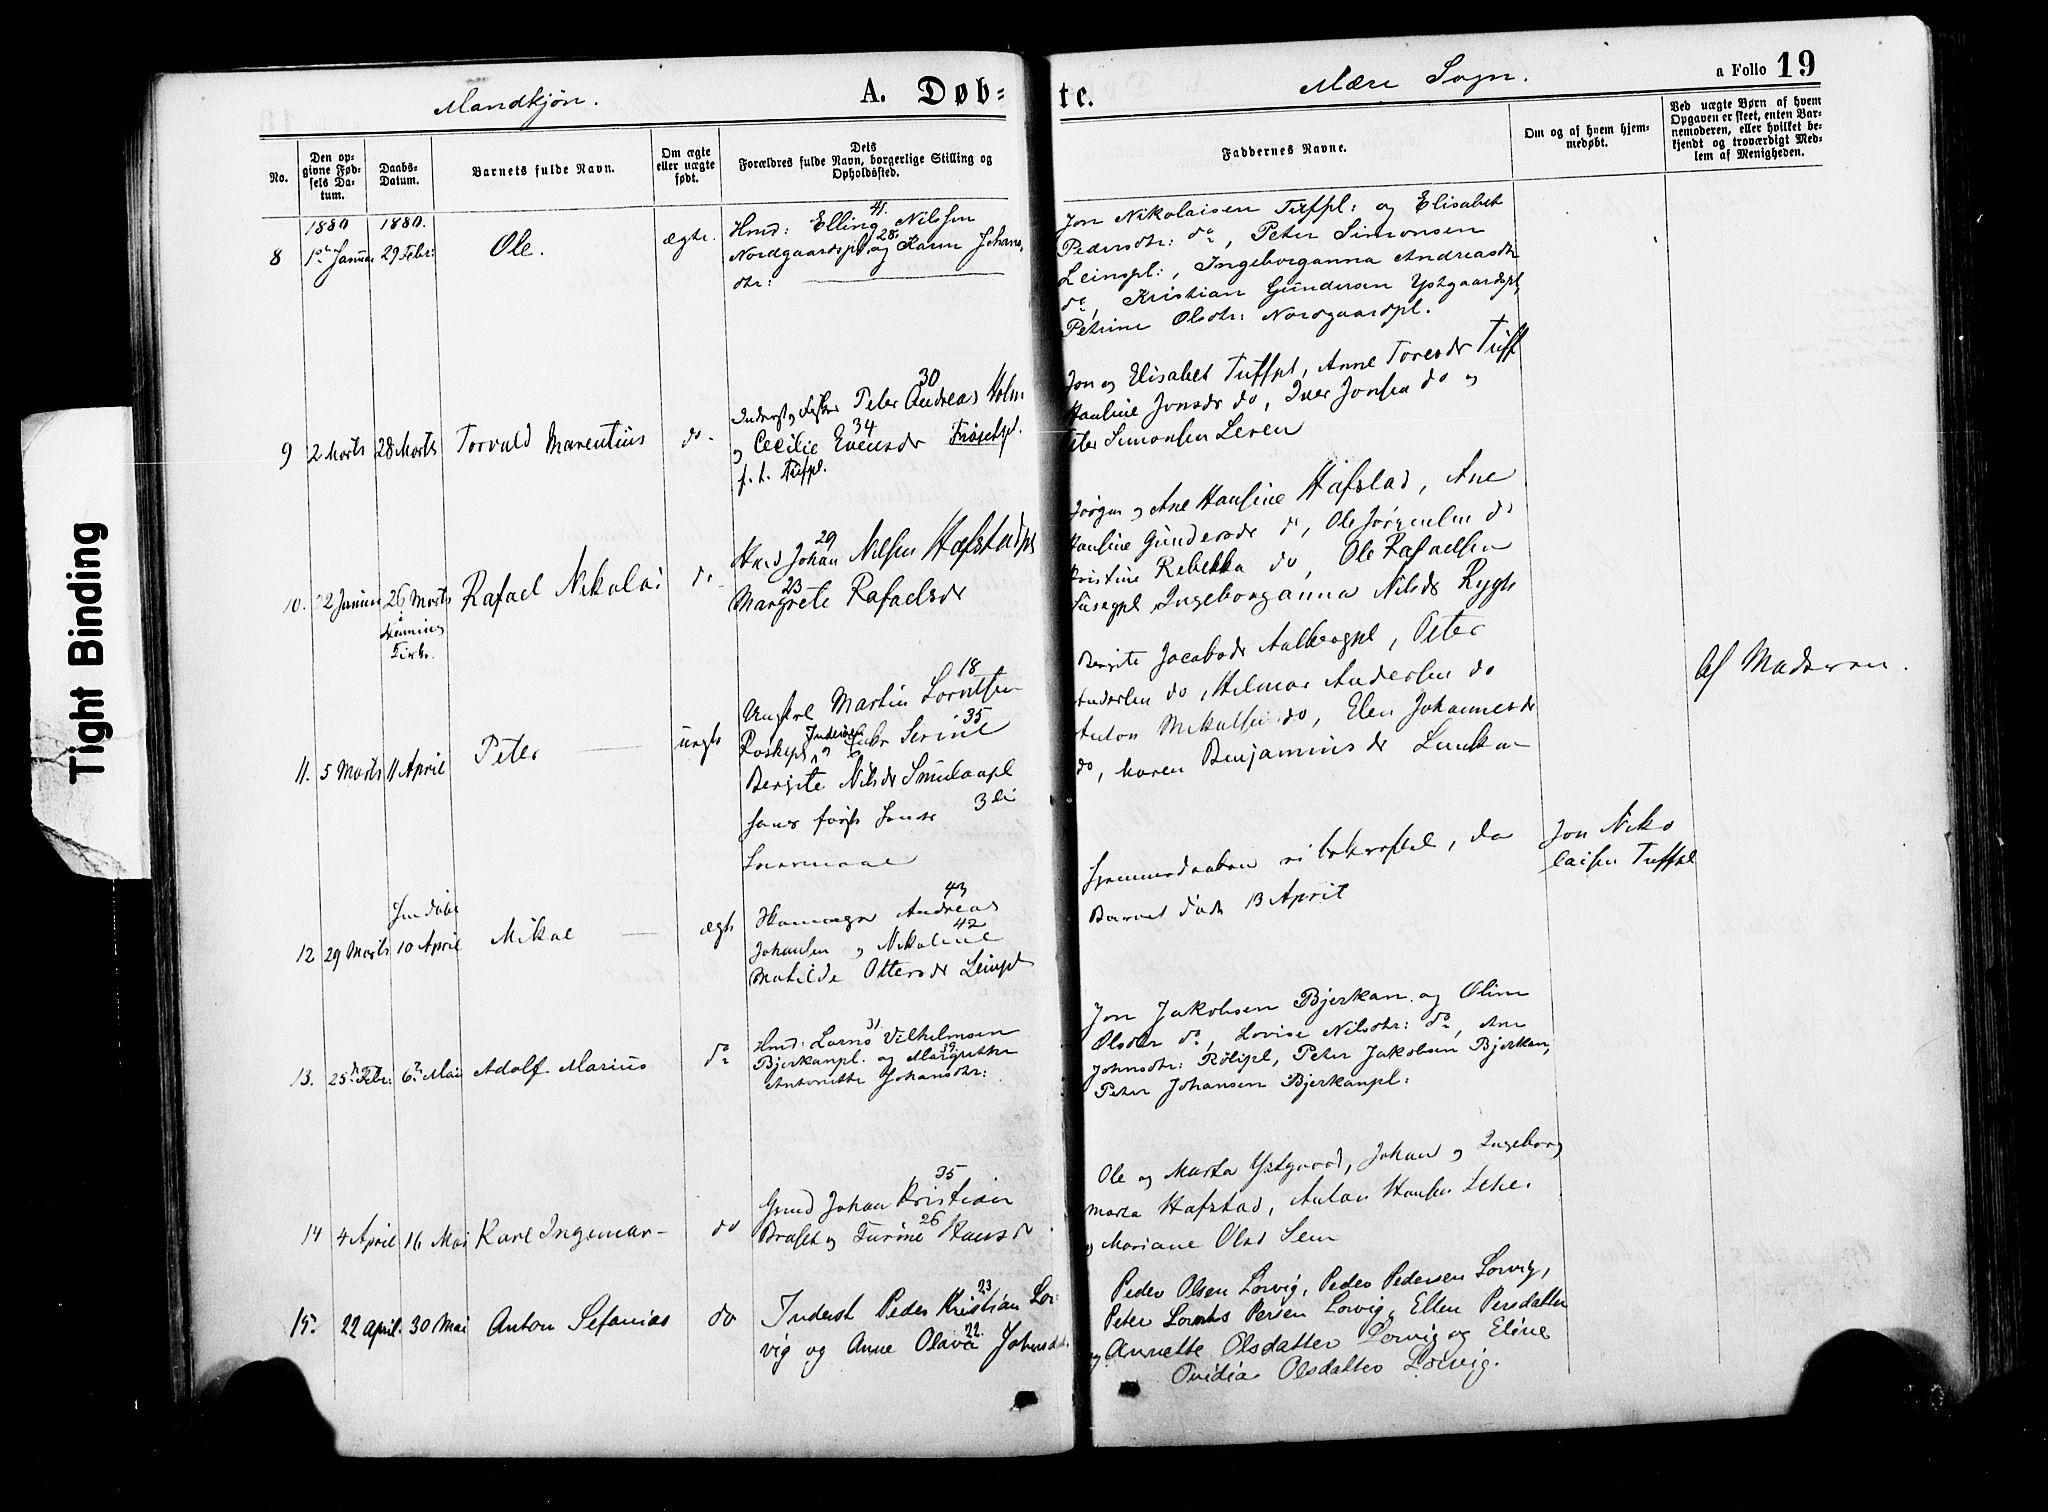 Mandkjøn.
A. Døb=
te.
Mære Sogn.
a Folio 19
No.
Den op=
givne Fød=
sels Da=
tum.
Daabs=
Datum.
Barnets fulde Navn.
Om ægte
eller uægte
født.
Dets
Forældres fulde Navn, borgerlige Stilling og
Opholdssted.
Faddernes Navne.
Om og af hvem hjem=
medøbt.
Ved uægte Børn af hvem
Opgaven er skeet, enten Bar=
nemoderen, eller hvilket be=
kjendt og troværdigt Med=
lem af Menigheden.
1880 1880.
8 1ste Januar 29 Febr: Ole. ægte.
41.
Hmd: Elling Nilssen
28.
Nordgaardspl. og Karen Johans
dtr:
Jon Nikolaisen Tufpl: og Elisabet
Pedersdtr: do, Peter Simonsen
Leinspl:, Ingeborganna Andreasdtr
do, Kristian Gundersen Ystgaardspl,
Petrine Olsdtr: Nordgaardspl.
9 2 Marts 28 Marts Torvald Marentius do
30
Inderst og Fisker Peter Andreas Holm
34
og Cecilie Evensdr Frøsetpl.
p. t. Tufpl.
Jon og Elisabet Tuffpl, Anne Toresdr Tuff
Hansine Jonsdr do, Iver Jonsen do og
Peter Simonsen Leren
10. 22 Januar 26 Marts Rafael Nikolai do
i
Kirke.
29
Hmd Johan Nilsen Hafstadpl
23
Margrete Rafaelsdr
Jørgen og Ane Hansine Hafstad, Ane
Hansine Gundersdr do, Ole Jørgensen do
Kristine Rebekka do, Ole Rafaelsen
Ingeborganna Nilsdr Rygh
11. 5 Marts 11 April Peter uægte
18
Ungkarl Martin Lorntsen
35
og Serine
Bergite Nilsdr
3die
Leiermaal
Bergite Jacobsdr Aalbergpl, Peter
Andersen do, Hilmar Andersen do
Anton Mikalsen do, Elen Johannesdr
do, Karen Benjaminsdr
Af Moderen.
12 29 Marts 10 April Mikal ægte
43
Andreas
42
Johansen og Nikoline
Matilde Ottersdr Leinspl
Hjemmedaaben ei bekræftet, da
Barnet døde 13 April
Jon Niko
laisen Tuffpl
13. 25de Febr: 6te Mai Adolf Marius do
31.
Hmd: Lornts Vilhelmsen
39.
Bjerkanpl. og Margrethe
Antonette Johansdtr:
Jon Jakobsen Bjerkan og Oline
Olsdtr do, Lovise Nilsdtr: do, Ane
Johnsdtr: Rølipl, Peter Jakobsen Bjerkan,
Peter Johansen Bjerkanpl:
14 4 April 16 Mai Karl Ingemar do
35
Gmd Johan Kristian
26
Braset og Turine Hansdr
Ole og Marta Ystgaard, Johan og Ingeborg
Marta Hafstad, Anton Hansen
og Mariane Olsd Sem
15. 22 April. 30 Mai Anton Sefanias do
23
Inderst Peder Kristian Lor=
22.
vig og Anne Olava Johnsdtr.
Peder Olsen Lorvig, Peder Pedersen Lorvig,
Peter Lornts Persen Lorvig, Ellen Persdatter
og Annette Olsdatter Lorvig og Eline
Ovidia Olsdatter Lorvig.
Tight Binding